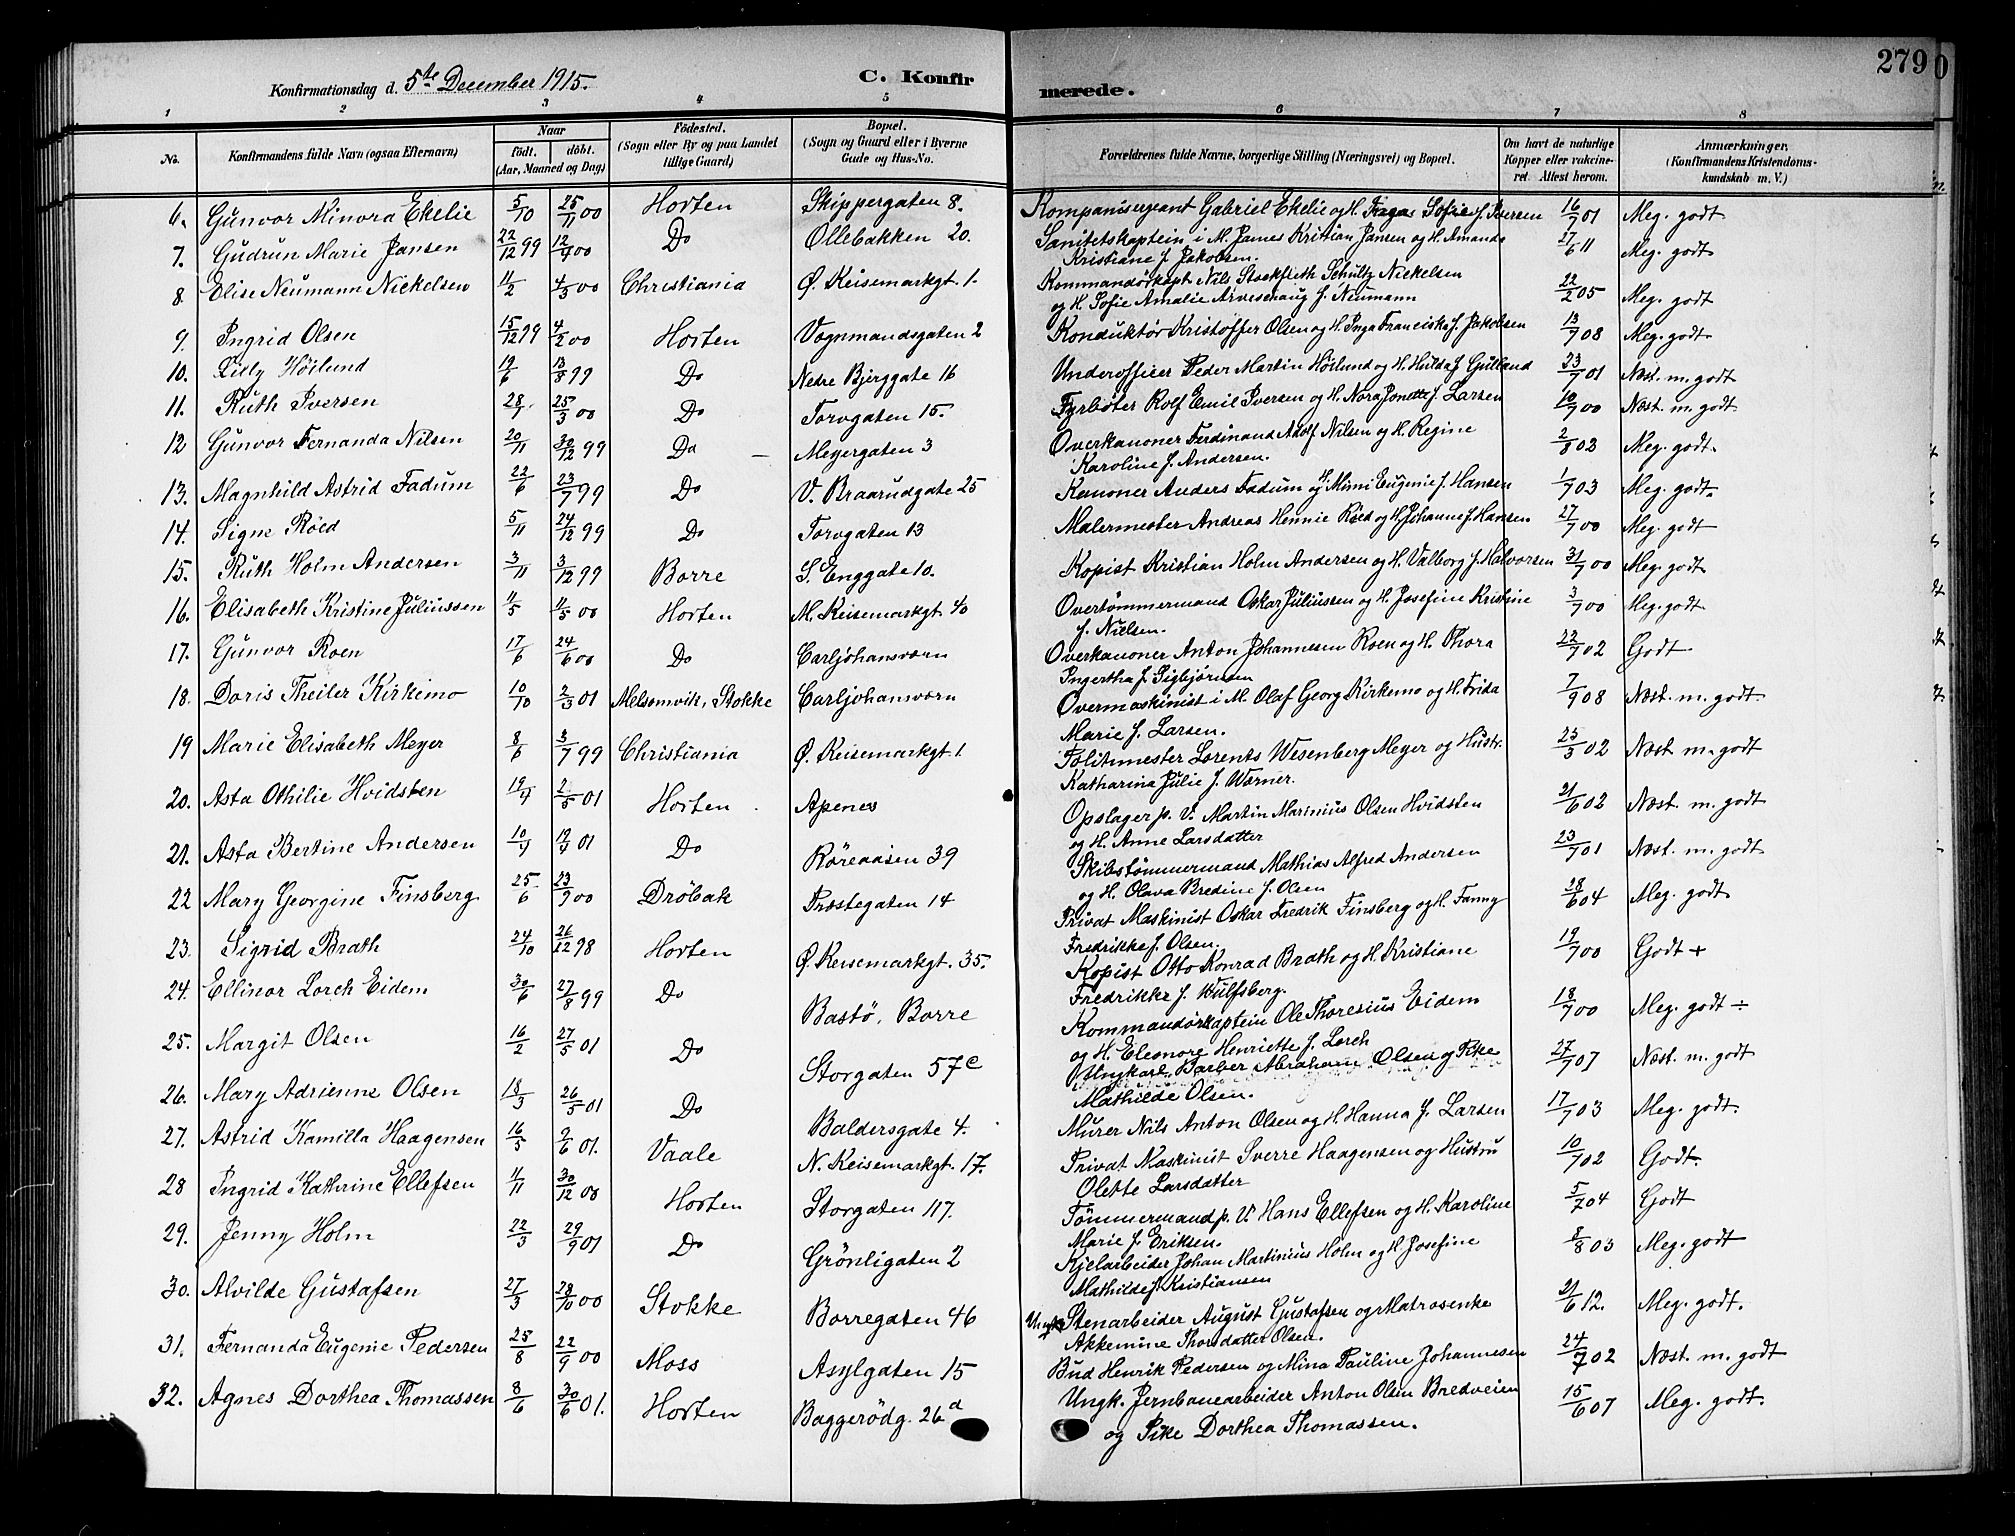 279
Konfirmationsdag d. 5te December 1915.
C. Konfirmerede.
1 2 3 4 5 6 7 8
No.
Konfirmandens fulde Navn (ogsaa Efternavn)
Naar
født. døbt.
(Aar, Maaned og Dag)
Fødested.
(Sogn eller By og paa Landet
tillige Gaard)
Bopæl.
(Sogn og Gaard eller i Byerne
Gade og Hus-No.
Forældrenes fulde Navne, borgerlige Stilling (Næringsvei) og Bopæl.
Om havt de naturlige
Kopper eller vaccineret. Attest herom.
Anmærkninger.
(Konfirmandens Kristendomskundskab m. V.)
6. Gunvor Minora Ekelie 5/10 25/11 00 Horten Skippergaten 8. Kompanisergeant Gabriel Ekelie og H. Sofie f. Iversen 16/7 01 Meg. godt
7. Gudrun Marie Jansen 22/12 99 12/4 00 Do Ollebakken 20. Sanitetskaptein i M. James Kristian Jansen og H. Amanda
Kristiane f. Jakobsen. 27/6 11 Meg. godt
8 Elise Neumann Nickelsen 11/2 4/3 00 Christiania Ø. Keisemarkgt. 1. Kommandørkapt Nils Stockfleth Schultz Nickelsen
og H. Sofie Amalie Arveschoug f. Neumann 22/2 05 Meg. godt
9. Ingrid Olsen 15/12 99 4/2 00 Horten Vognmandsgaten 2 Konduktør Kristoffer Olsen og H. Inga Franciska f. Jakobsen 13/7 08 Meg. godt
10. Lilly Höilund 19/6 13/8 99 Do Nedre Bjerggate 16 Underofficer Peder Martin Höilund og H. Hulda f Gulland 23/7 01 Næst. m. godt
11. Ruth Iversen 28/1 25/3 00 Do Torvgaten 15. Fyrbøter Rolf Emil Iversen og H. Nora Jonette f. Larsen 10/7 00 Næst. m. godt
12 Gunvor Fernanda Nilsen 20/11 30/12 99 Do Meyergaten 3 Overkanoner Ferdinand Adolf Nilsen og H. Regine
Karoline f. Andersen. 2/8 02 Meg. godt
13. Magnhild Astrid Fadum 22/6 23/7 99 Do V. Braarudgate 25 Kanoner Anders Fadum og H. Mimi Eugenie f. Hansen 1/7 03 Meg. godt
14. Signe Röed 5/11 24/12 99 Do Torvgaten 13 Malermester Andreas Hennie Röed og H. Johanne f. Hansen 27/7 00 Meg. godt
15. Ruth Holm Andersen 3/11 3/12 99 Borre S. Enggate 10. Kopist Kristian Holm Andersen og H. Valborg f. Halvorsen 31/7 00 Meg. godt
16. Elisabeth Kristine Juliussen 11/5 00 Horten M. Keisemarkgt. 40 Overtömmermand Oskar Juliussen og H. Josefine Kristine
f. Nielsen. 3/7 00 Meg. godt
17. Gunvor Roen 17/6 24/6 00 Do Carljohansværn Overkanoner Anton Johannesen Roen og H. Thora
Ingertha f. Sigbjörnsen 22/7 02 Godt
18. Doris Theiler Kirkemo 10/10 2/3 01 Melsomvik, Stokke Carljohansværn Overmaskinist i M. Olaf Georg Kirkemo og H. Frida
Marie f. Larsen. 7/9 08 Næst. m. godt
19 Marie Elisabeth Meyer 8/6 3/7 99 Christiania Ø. Keisemarkgt. 1 Politimester Lorents Wesenberg Meyer og Hustr.
Katharina Julie f. Werner. 23/3 02 Næst m. godt
20. Asta Othilie Hvidsten 19/4 2/5 01 Horten Apenes Opslager p. V. Martin Marinius Olsen Hvidsten
og H. Anne Larsdatter 21/6 02 Næst. m. godt
21. Asta Bertine Andersen 10/4 19/4 01 Do Röreaasen 39 Skibstömmermand Mathias Alfred Andersen
og H. Olava Bredine f. Olsen 23/7 01 Næst. m. godt
22 Mary Georgine Finsberg 25/6 23/9 00 Dröbak Præstegaten 14 Privat Maskinist Oskar Fredrik Finsberg og H. Fanny
Fredrikke f. Olsen. 28/6 04 Meg. godt
23. Sigrid Brath 24/10 26/12 98 Horten Ø. Keisemarkgt. 35. Kopist Otto Konrad Brath og H. Kristiane
Fredrikke f. Wulfsberg. 19/7 00 Godt +
24. Ellinor Lorch Eidem 30/6 27/8 99 Do Bastö, Borre Kommandörkaptein Ole Thoresius Eidem
og H. Eleonore Henriette f. Lorch 18/7 00 Meg. godt ÷
25. Margit Olsen 16/2 27/5 01 Do Storgaten 57c Ungkarl Barber Abraham Olsen og Pike
Mathilde Olsen. 27/7 07 Næst. m. godt
26. Mary Adrienne Olsen 18/3 26/5 01 Do Baldersgate 4. Murer Nils Anton Olsen og H. Hanna f. Larsen 17/7 03 Meg. godt.
27. Astrid Kamilla Haagensen 16/5 9/6 01. Vaale N. Keisemarkgt. 17. Privat Maskinist Sverre Haagensen og Hustru
Olette Larsdatter 10/7 02 Godt.
28 Ingrid Kathrine Ellefsen 11/11 30/12 00 Horten Storgaten 117. Tömmermand p. V. Hans Ellefsen og H. Karoline
Marie f. Eriksen. 5/7 04 Godt
29. Jenny Holm 22/3 29/9 01 Do Grönligaten 2 Kjelarbeider Johan Martinius Holm og H. Josefine
Mathilde f. Kristiansen 8/8 03 Meg. godt
30. Alvilde Gustafsen 27/3 28/10 00 Stokke Borregaten 46 Ungk. Stenarbeider August Gustafsen og Matrosenke
Akkemine Thorsdatter Olsen. 21/6 12. Meg. godt.
31. Fernanda Eugenie Pedersen 25/8 22/9 00 Moss Asylgaten 15 Bud Henrik Pedersen og Mina Pauline Johannesen 24/7 02 Næst. m. godt
32. Agnes Dorthea Thomassen 8/6 30/6 01. Horten Baggerödg. 26d Ungk. Jernbanearbeider Anton Olsen Bredveien
og Pike Dorthea Thomassen. 15/6 07 Meg. godt.